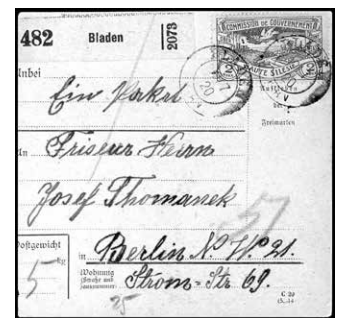 482 Bladen 2073
COMMISSION DE GOUVERNEMENT
HAUTE SILESIE
Anbei
Ein Paket
des
Freimarken
An Friseur Herrn
Josef Thomanek
57
Postgewicht
5 kg
in Berlin N. W. 21.
Wohnung
(Straße und
Hausnummer)
Strom-Str. 69.
25
C 20